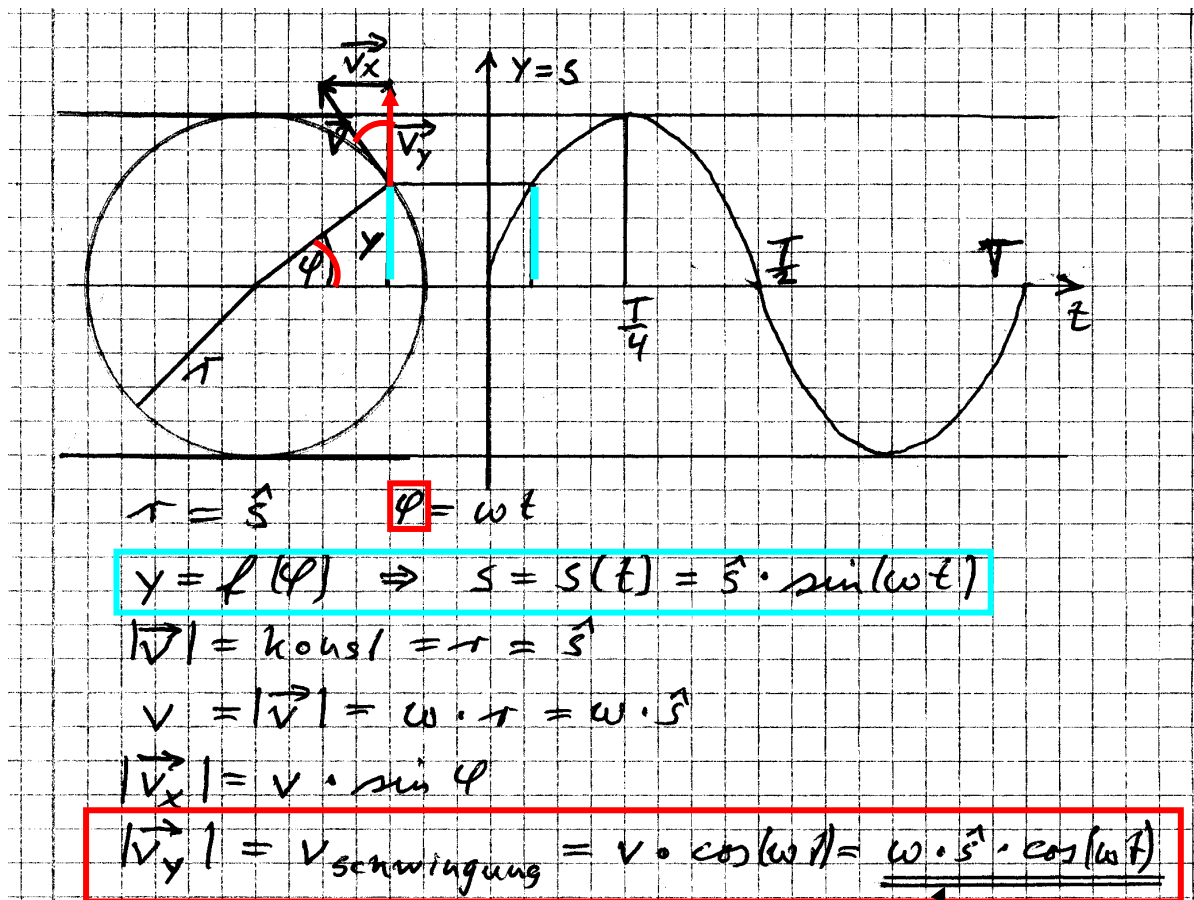 v⃗ₓ
y = s
v⃗
v⃗ᵧ
y
φ
r
T/4
T/2
T
t
r = ŝ φ = ωt
y = f(φ) ⇒ s = s(t) = ŝ · sin(ωt)
|v⃗| = konst = r = ŝ
v = |v⃗| = ω · r = ω · ŝ
|v⃗ₓ| = v · sin φ
|v⃗ᵧ| = v_schwingung = v · cos(ωt) = ω · ŝ · cos(ωt)